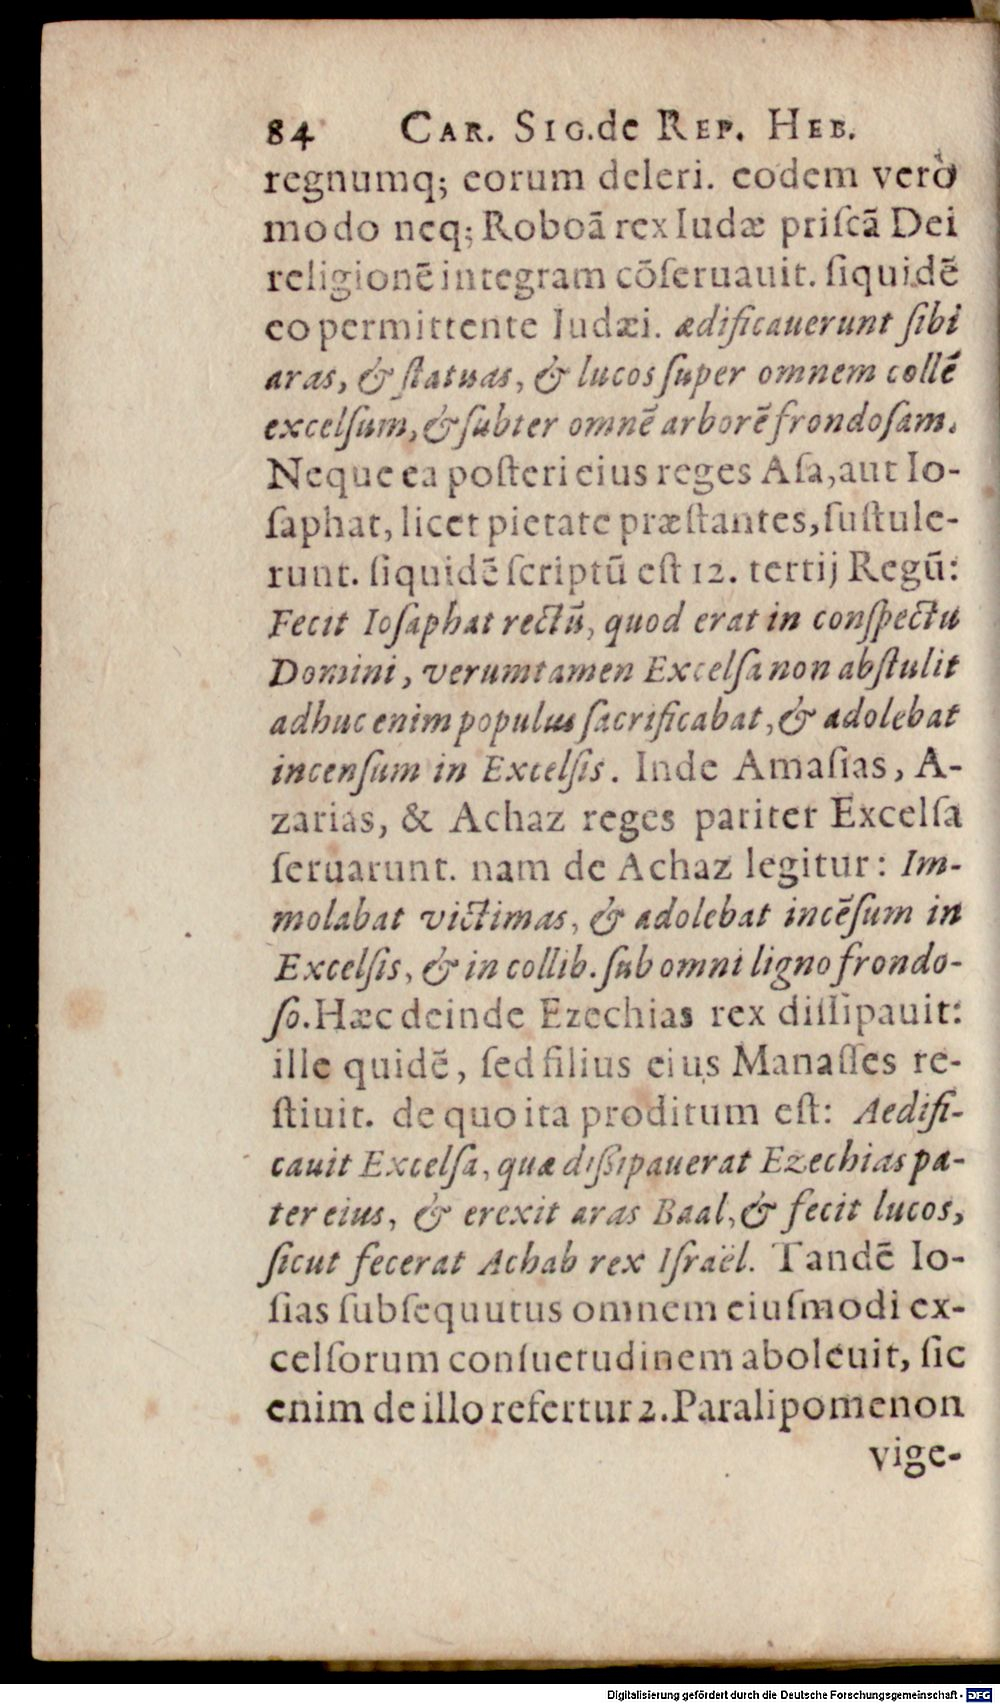 84 CAR. SIG.de REP. HEB.
regnumq; eorum deleri. eodem verò
modo neq; Roboã rex Iudæ priſcã Dei
religionẽ integram cõſeruauit. ſiquidẽ
eo permittente Iudæi. ædificauerunt ſibi
aras, & ſtatuas, & lucos ſuper omnem collẽ
excelſum, & ſubter omnẽ arborẽ frondoſam.
Neque ea poſteri eius reges Aſa, aut Io-
ſaphat, licet pietate præſtantes, ſuſtule-
runt. ſiquidẽ ſcriptũ eſt 12. tertij Regũ:
Fecit Ioſaphat rectũ, quod erat in conſpectu
Domini, verumtamen Excelſa non abſtulit
adhuc enim populus ſacrificabat, & adolebat
incenſum in Excelſis. Inde Amaſias, A-
zarias, & Achaz reges pariter Excelſa
ſeruarunt. nam de Achaz legitur: Im-
molabat victimas, & adolebat incẽſum in
Excelſis, & in collib. ſub omni ligno frondo-
ſo. Hæc deinde Ezechias rex diſſipauit:
ille quidẽ, ſed filius eius Manaſſes re-
ſtiuit. de quo ita proditum eſt: Aedifi-
cauit Excelſa, quæ diſſipauerat Ezechias pa-
ter eius, & erexit aras Baal, & fecit lucos,
ſicut fecerat Achab rex Iſraël. Tandẽ Io-
ſias ſubſequutus omnem eiuſmodi ex-
celſorum conſuetudinem aboleuit, ſic
enim de illo refertur 2. Paralipomenon
vige-
Digitalisierung gefördert durch die Deutsche Forschungsgemeinschaft - DFG